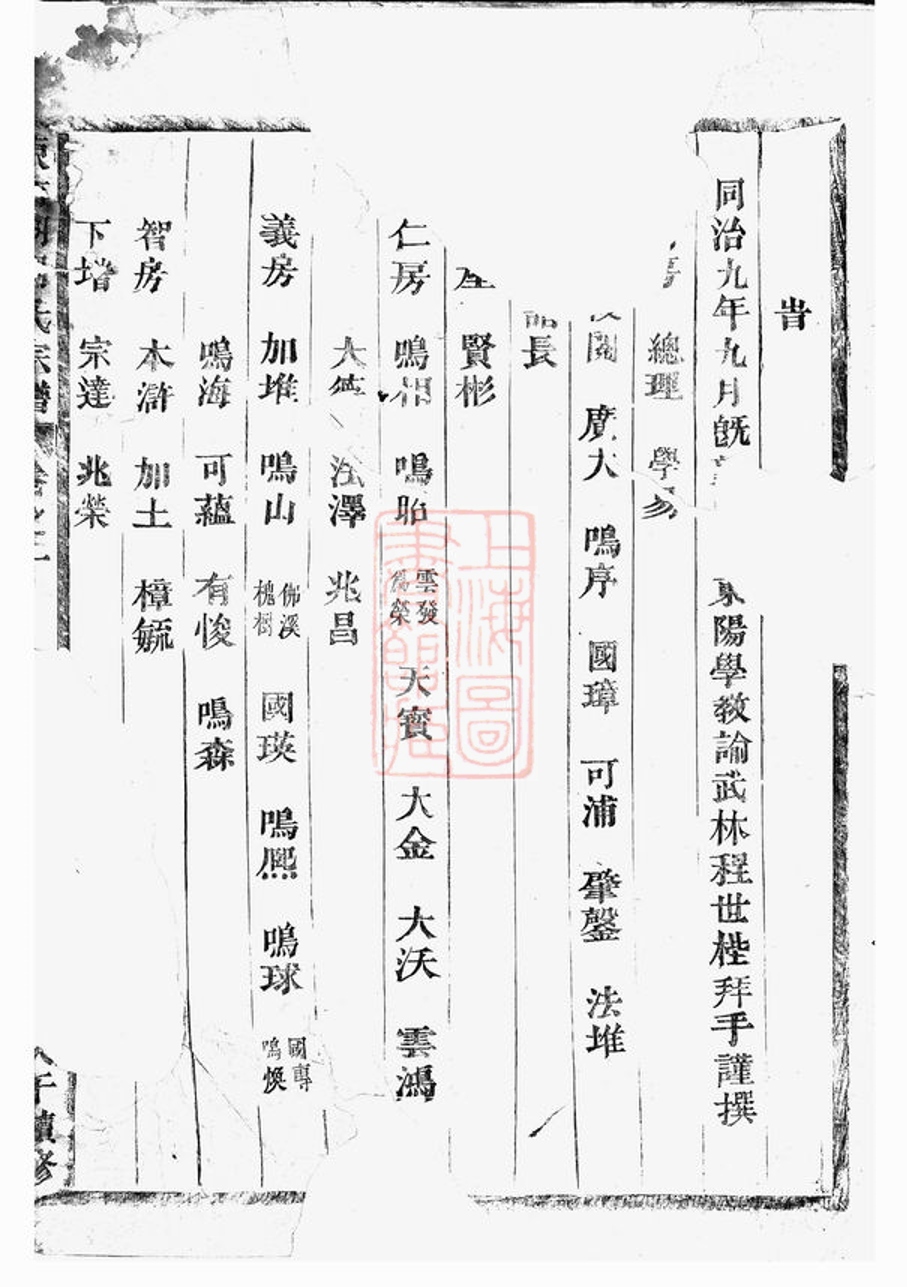 旹
同治九年九月旣
東陽學敎諭武林程世梐拜手謹撰
總理 學易
校閱 廣大 鳴序 國璋 可浦 肇鏧 法堆
長
賢彬
仁房 鳴相 鳴貽 雲發 爲榮 天寶 大金 大沃 雲鴻
大 法澤 兆昌
義房 加堆 鳴山 佛溪 槐樹 國瑛 鳴熈 鳴球 國專 鳴煥
鳴海 可蘊 有悛 鳴森
智房 木滸 加土 樟毓
下堦 宗達 兆榮
氏宗譜
午續修
上海圖書館藏